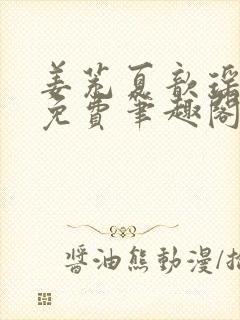 姜荒夏歆瑶
免費筆趣閣
醬油熊動漫/